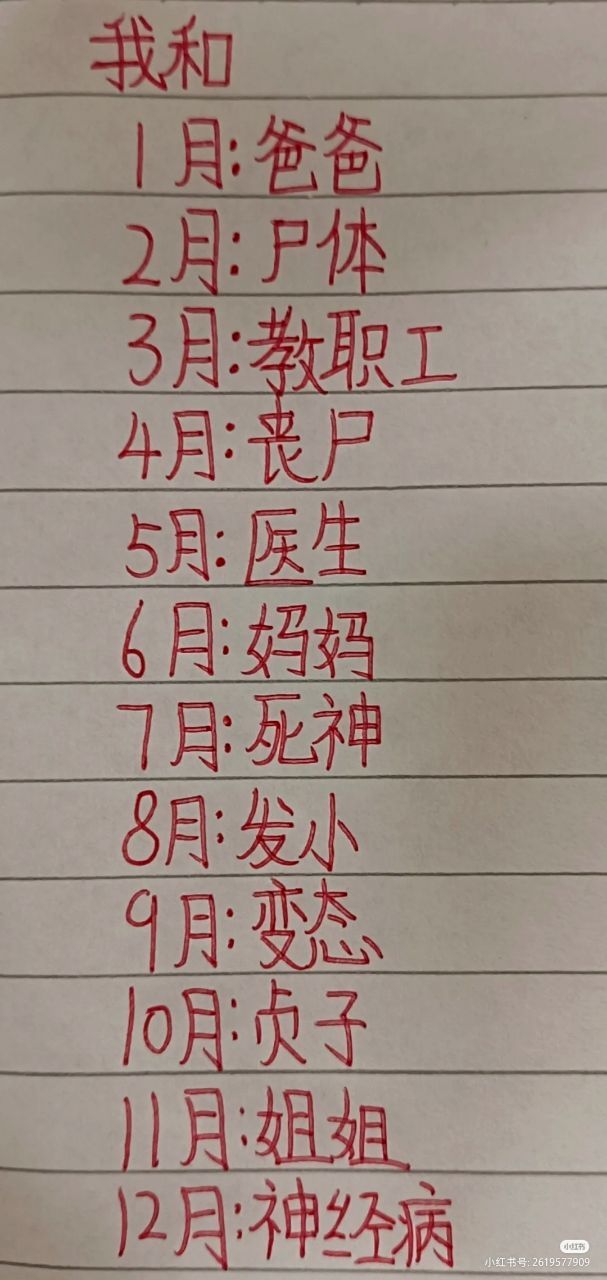 我和
1月:爸爸
2月:尸体
3月:教职工
4月:丧尸
5月:医生
6月:妈妈
7月:死神
8月:发小
9月:变态
10月:贞子
11月:姐姐
12月:神经病
小红书
小红书号: 2619577909